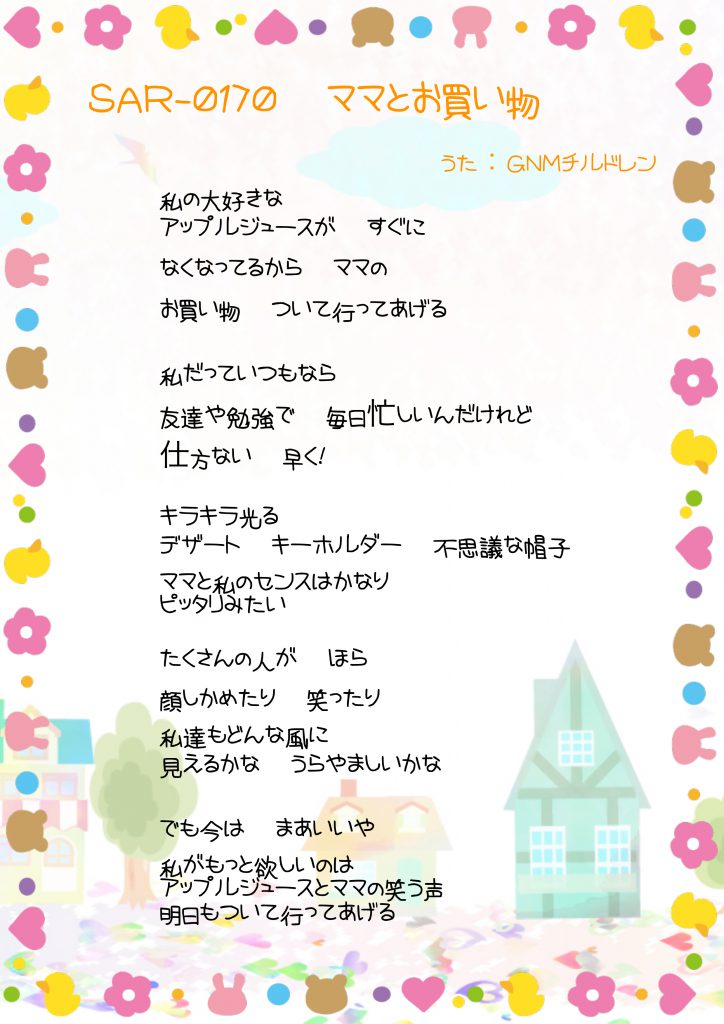 SAR-0170　ママとお買い物
うた：GNMチルドレン
私の大好きな
アップルジュースが　すぐに
なくなってるから　ママの
お買い物　ついて行ってあげる
私だっていつもなら
友達や勉強で　毎日忙しいんだけれど
仕方ない　早く!
キラキラ光る
デザート　キーホルダー　不思議な帽子
ママと私のセンスはかなり
ピッタリみたい
たくさんの人が　ほら
顔しかめたり　笑ったり
私達もどんな風に
見えるかな　うらやましいかな
でも今は　まあいいや
私がもっと欲しいのは
アップルジュースとママの笑う声
明日もついて行ってあげる